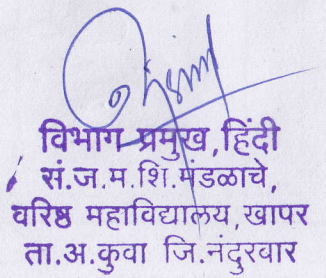 विभाग प्रमुख, हिंदी
सं.ज.म.शि.मंडळाचे,
वरिष्ठ महाविद्यालय, खापर
ता.अ.कुवा जि.नंदुरवार